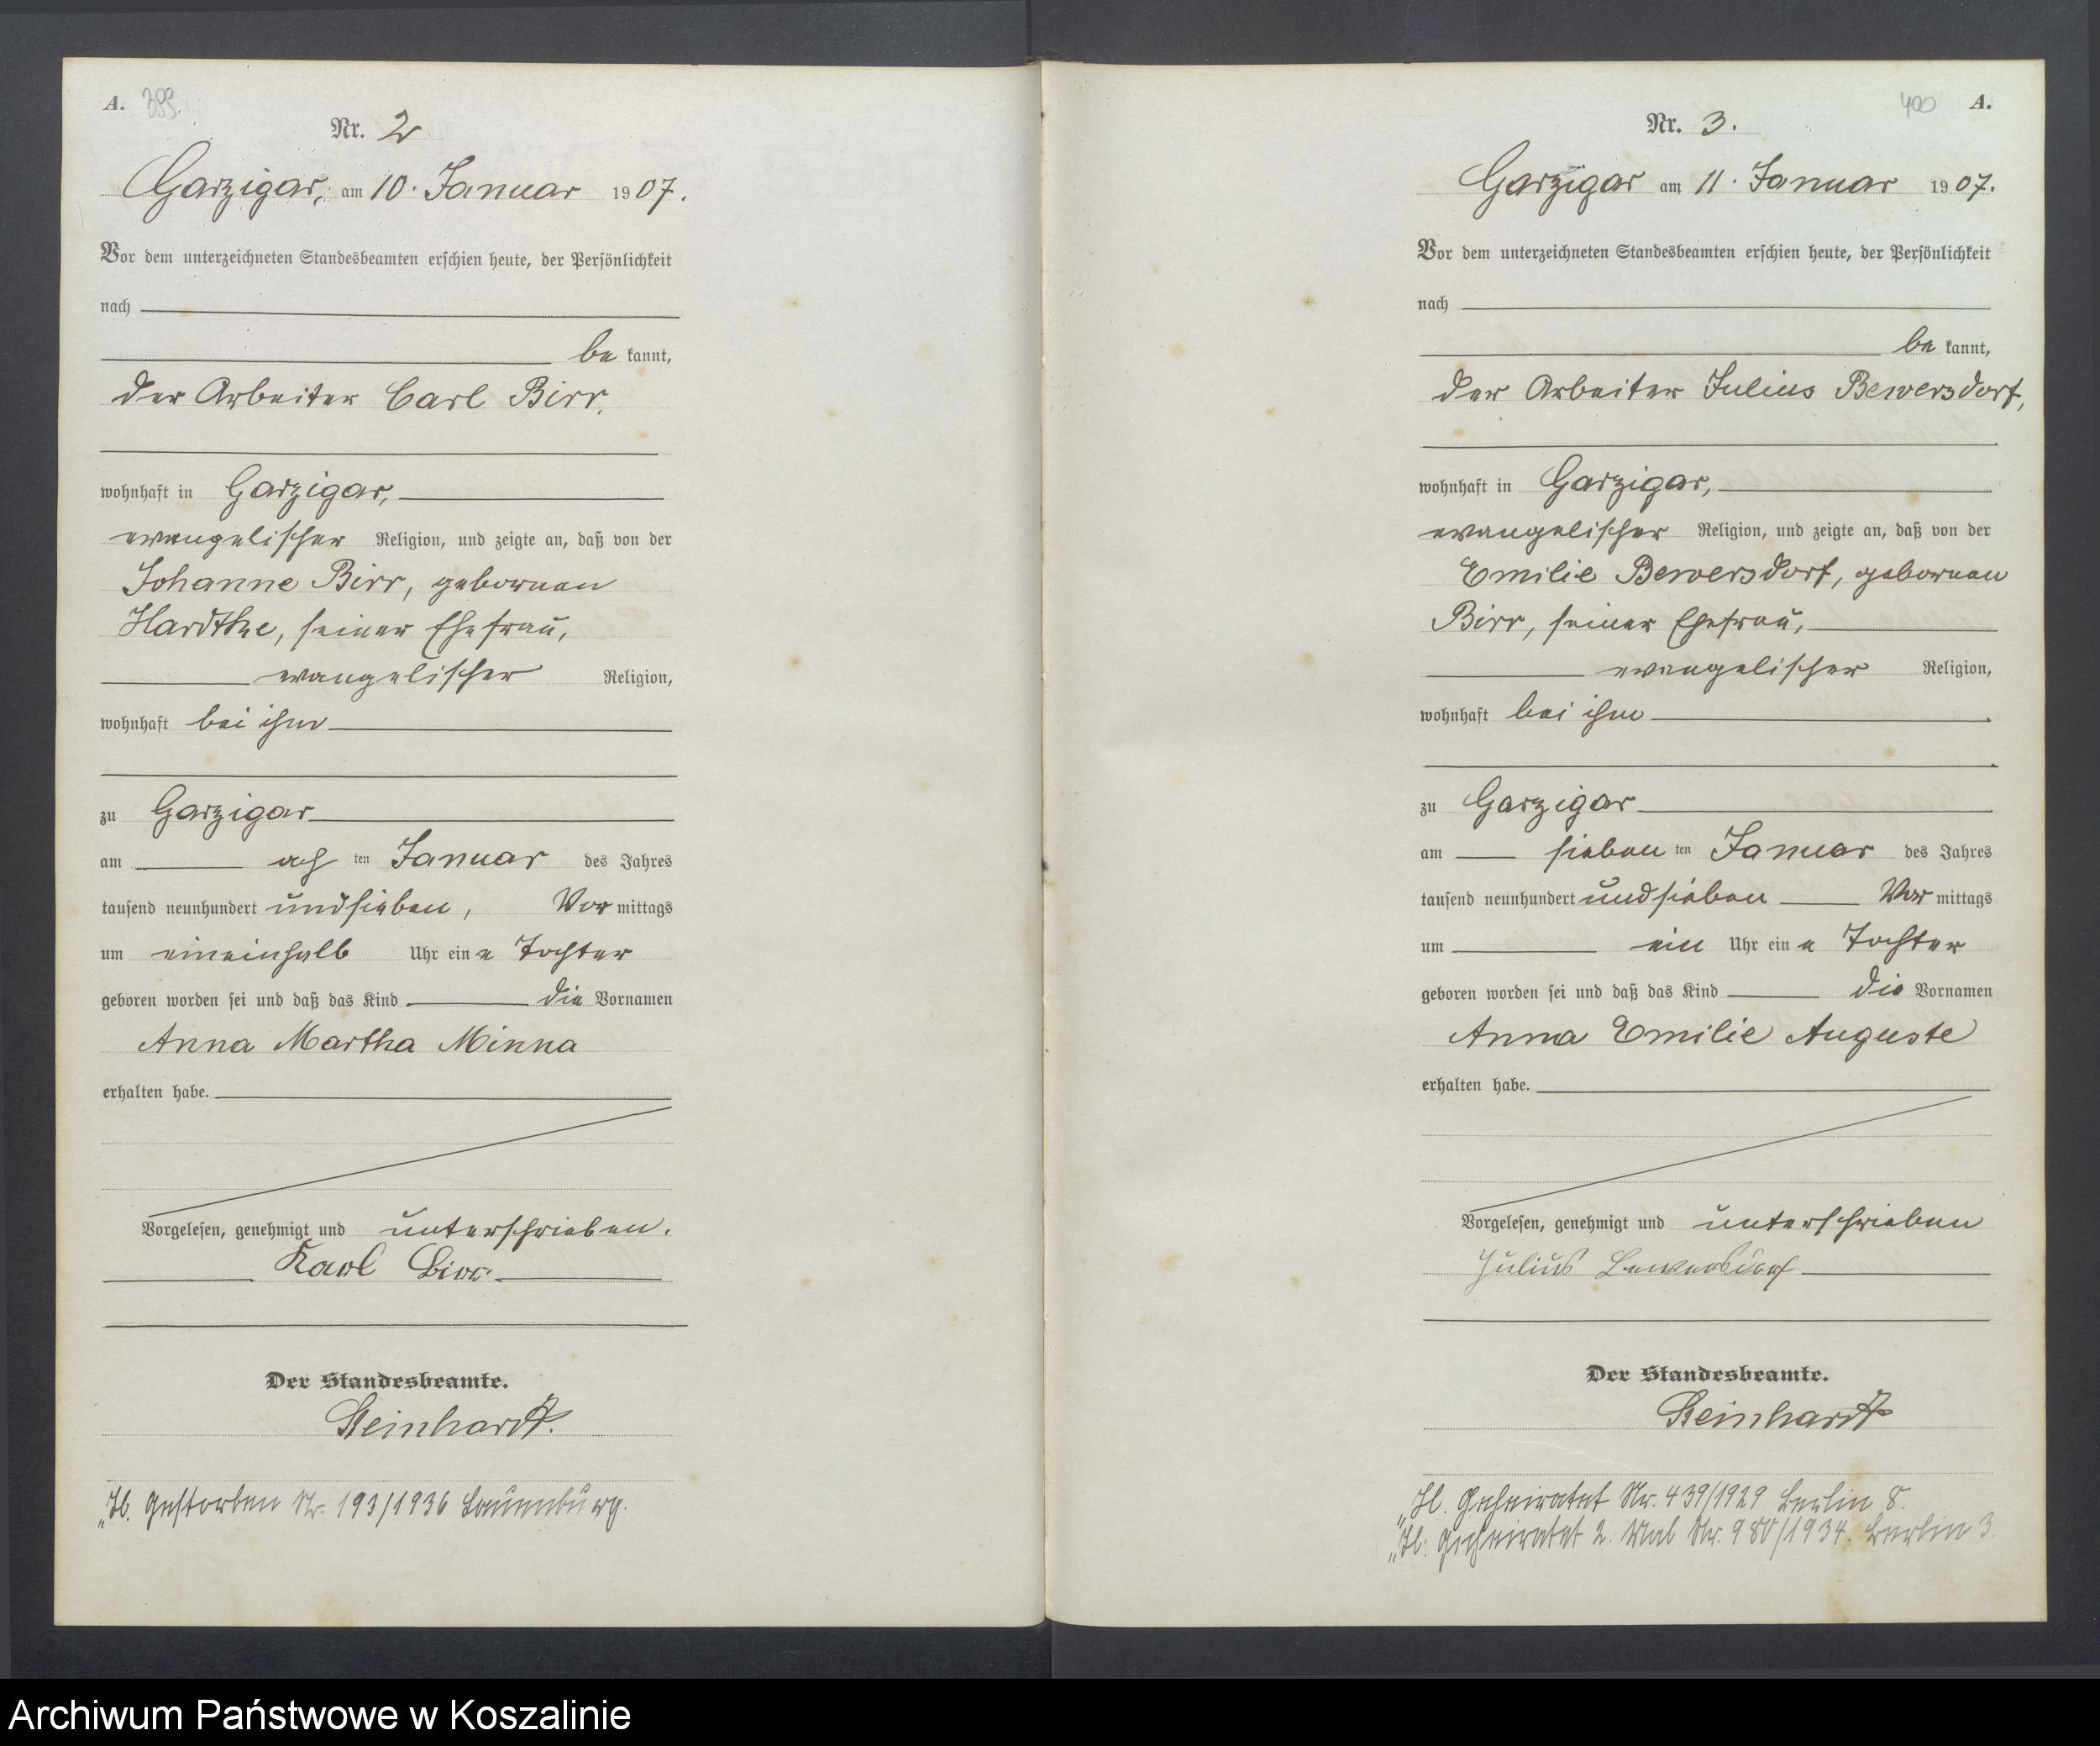 A. 399.
Nr. 2
Garzigar, am 10. Januar 1907.
Vor dem unterzeichneten Standesbeamten erschien heute, der Persönlichkeit
nach
be kannt,
der Arbeiter Carl Birr,
wohnhaft in Garzigar,
evangelischer Religion, und zeigte an, daß von der
Johanne Birr, gebornen
Hardtke, seiner Ehefrau,
evangelischer Religion,
wohnhaft bei ihm
zu Garzigar
am ach ten Januar des Jahres
tausend neunhundert und sieben, Vor mittags
um eineinhalb Uhr ein e Tochter
geboren worden sei und daß das Kind die Vornamen
Anna Martha Minna
erhalten habe.
Vorgelesen, genehmigt und unterschrieben.
Karl Birr
Der Standesbeamte.
Reinhardt.
gestorben Nr. 193/1936 Lauenburg.
400 A.
Nr. 3.
Garzigar am 11. Januar 1907.
Vor dem unterzeichneten Standesbeamten erschien heute, der Persönlichkeit
nach
be kannt,
der Arbeiter Julius Bewersdorf,
wohnhaft in Garzigar,
evangelischer Religion, und zeigte an, daß von der
Emilie Bewersdorf, gebornen
Birr, seiner Ehefrau,
evangelischer Religion,
wohnhaft bei ihm
zu Garzigar
am sieben ten Januar des Jahres
tausend neunhundert und sieben Vor mittags
um ein Uhr ein e Tochter
geboren worden sei und daß das Kind die Vornamen
Anna Emilie Auguste
erhalten habe.
Vorgelesen, genehmigt und unterschrieben
Julius Bewersdorf
Der Standesbeamte.
Reinhardt
Geheiratet Nr. 439/1929 Berlin 8.
geheiratet 2. Mal Nr. 980/1934. Berlin 3.
Archiwum Państwowe w Koszalinie